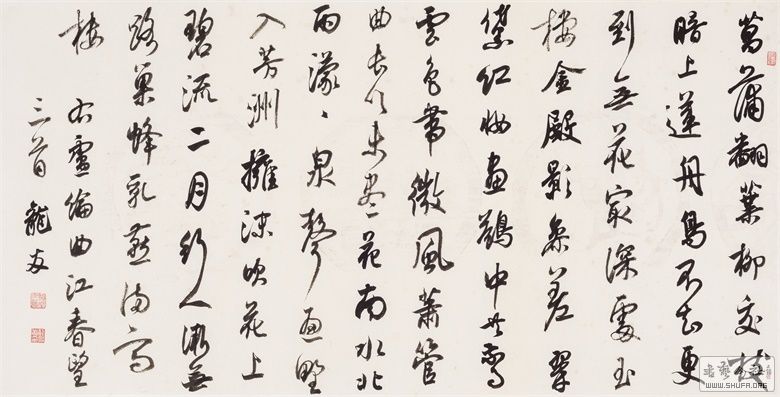 菖蒲翻葉柳交枝
暗上蓮舟鳥不知更
到無花最深處玉
樓金殿影參差翠
黛紅妝畫鷁中共驚
雲色帶微風蕭管
曲長吹未盡花南水北
雨濛〻泉聲遍野
入芳洲擁沫吹花上
碧流二月行人漸無
路巢蜂乳燕滿高
樓
右盧綸曲江春望
三首 龍友
WWW.SHUFA.ORG